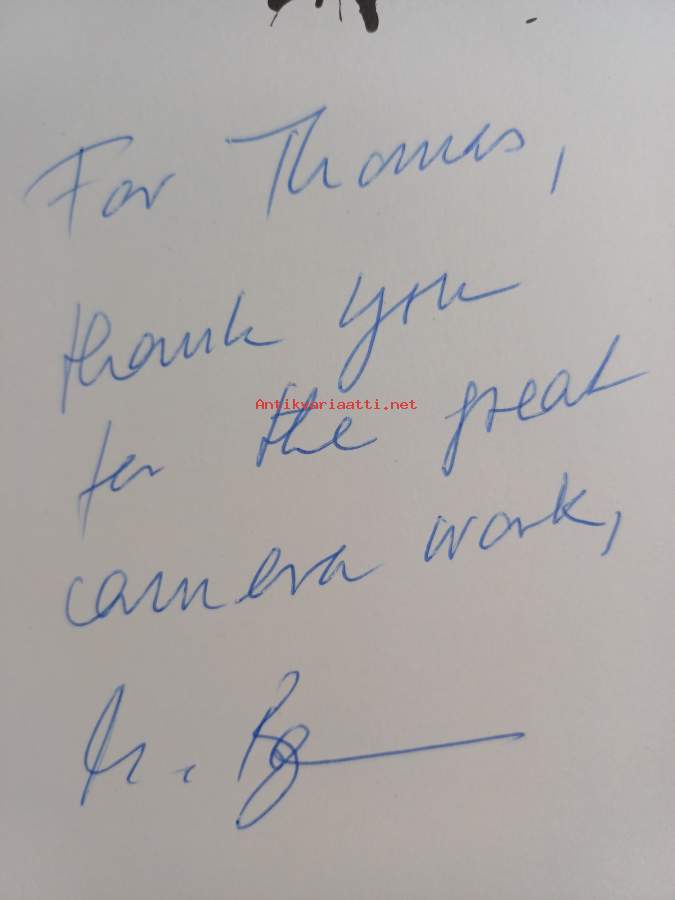 For Thomas,
thank you
Antikvariaatti.net
for the great
camera work,